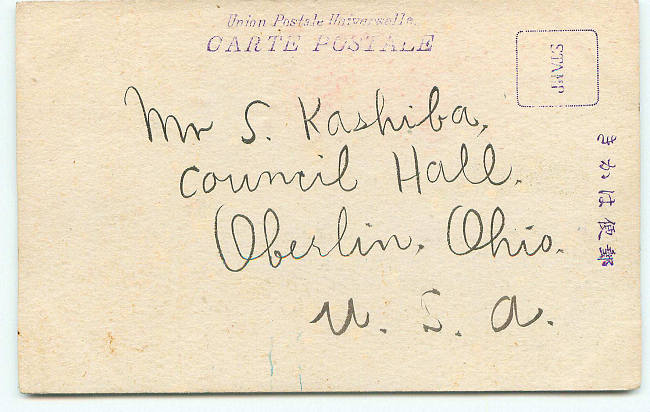 Union Postale Universelle.
CARTE POSTALE
STAMP
Mr S. Kashiba,
Council Hall.
Oberlin, Ohio.
U. S. A.
きかは便郵